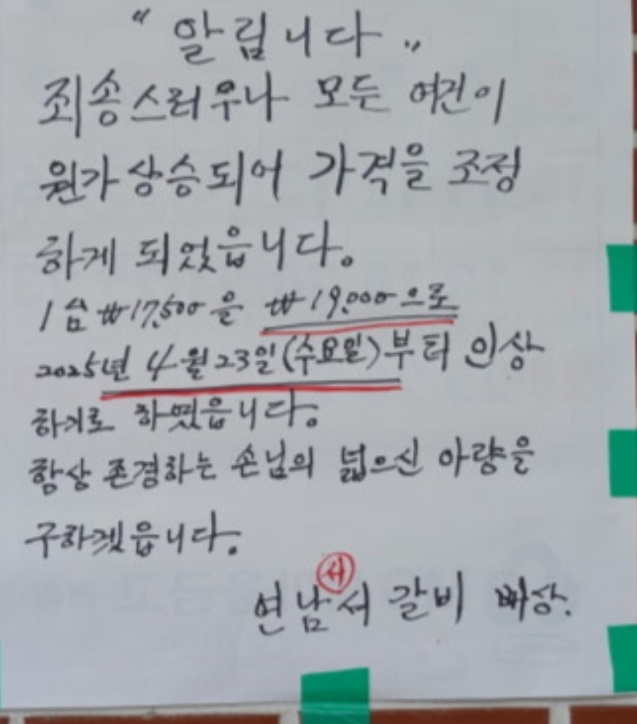 " 알립니다 "
죄송스러우나 모든 여건이
원가상승되어 가격을 조정
하게 되었읍니다.
1승 ₩17,500을 ₩19,000으로
2025년 4월 23일(수요일)부터 인상
하기로 하였읍니다.
항상 존경하는 손님의 넓으신 아량을
구하겠읍니다.
서
연남서 갈비